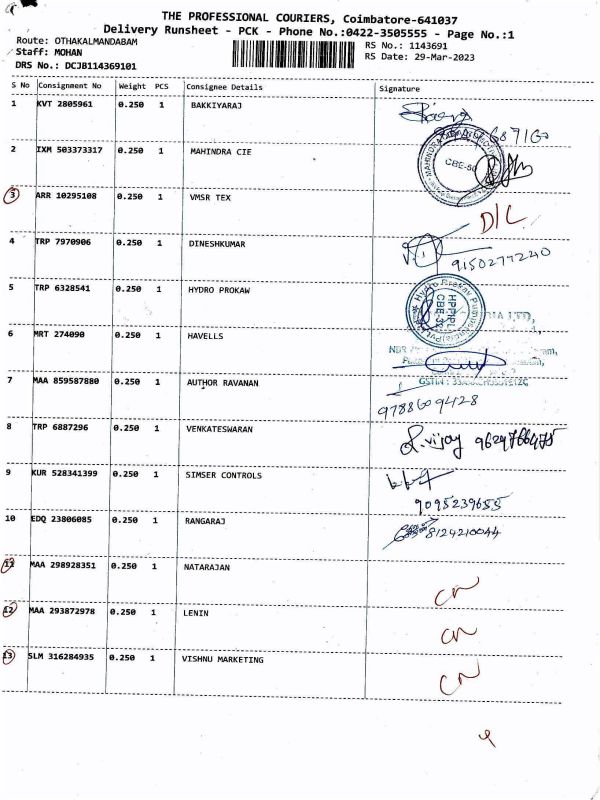 THE PROFESSIONAL COURIERS, Coimbatore-641037
Delivery Runsheet - PCK - Phone No.:0422-3505555 - Page No.:1
Route: OTHAKALMANDABAM
Staff: MOHAN
DRS No.: DCJB114369101
RS No.: 1143691
RS Date: 29-Mar-2023
S No Consignment No Weight PCS Consignee Details Signature
1 KVT 2805961 0.250 1 BAKKIYARAJ
2 IXM 503373317 0.250 1 MAHINDRA CIE
CBE-50
3 ARR 10295108 0.250 1 VMSR TEX D/L
4 TRP 7970906 0.250 1 DINESHKUMAR
9150277240
5 TRP 6328541 0.250 1 HYDRO PROKAW
HPPIPL
CBE-32
6 MRT 274090 0.250 1 HAVELLS
7 MAA 859587880 0.250 1 AUTHOR RAVANAN
9788609428
8 TRP 6887296 0.250 1 VENKATESWARAN
9629766475
9 KUR 528341399 0.250 1 SIMSER CONTROLS
9095239655
10 EDQ 23806085 0.250 1 RANGARAJ
8124210044
11 MAA 298928351 0.250 1 NATARAJAN CN
12 MAA 293872978 0.250 1 LENIN CN
13 SLM 316284935 0.250 1 VISHNU MARKETING CN